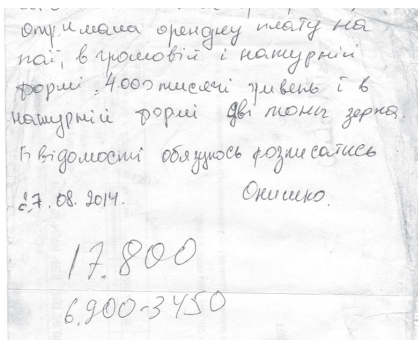 отримала орендну плату на
паї, в громовій і натурній
формі. 4000 тисячі гривень і в
натурній формі дві тоны зерна.
В відомості обязуюсь розписатись
27.08.2014. Онишко.
17.800
6.900-3450